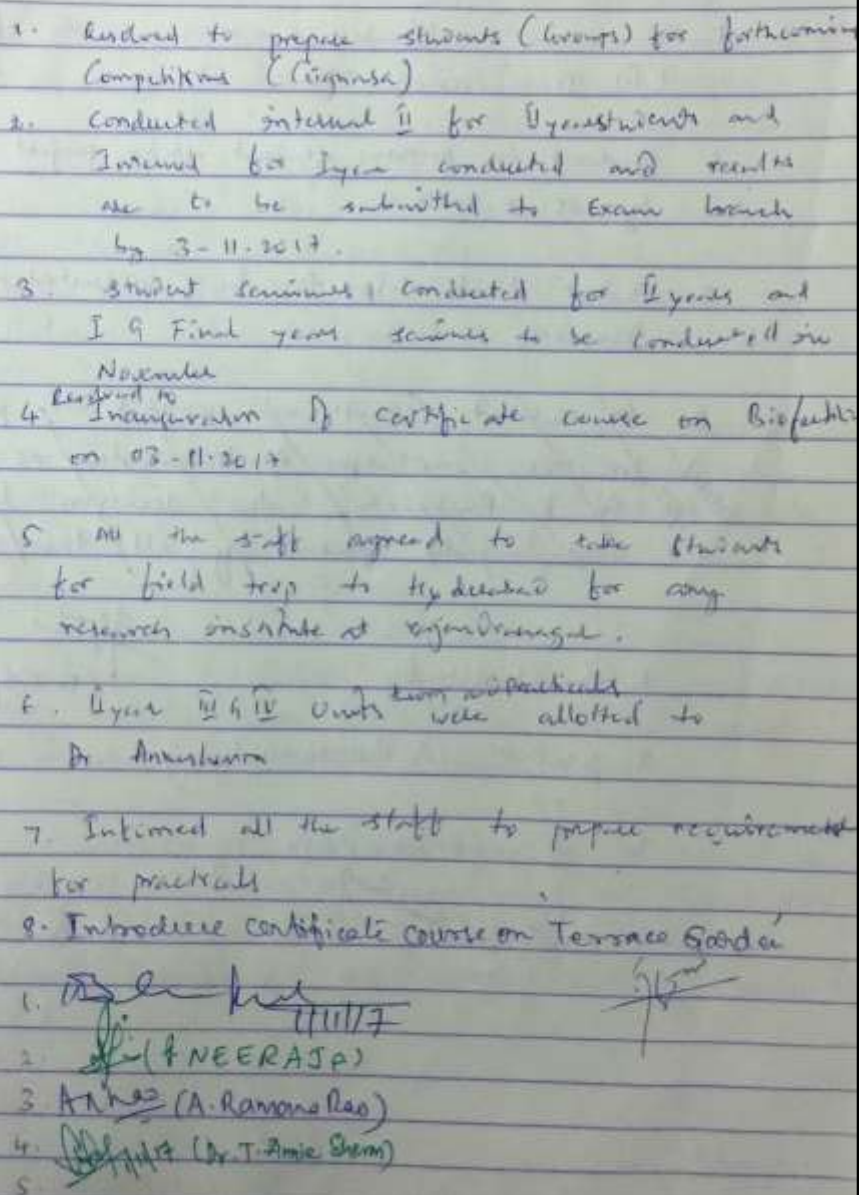 1. Resolved to prepare students (Groups) for forthcoming
Competitions (Jignasa)
2. Conducted internal II for II year students and
Internal for I year conducted and results
are to be submitted to Exam branch
by 3-11-2017.
3. Student seminars conducted for II years and
I & Final years seminars to be conducted in
November
Resolved to
4. Inauguration of certificate course on
on 03-11-2017
5. All the staff agreed to take students
for field trip to Hyderabad for any
research institute at rajendranagar.
6. II year III & IV Units were allotted to
Dr
7. Intimed all the staff to prepare requirement
for practicals
8. Introduce certificate course on Terrace Garden
1. 1/11/17
2. (NEERAJA)
3 (A. Ramana Rao)
4. (Dr. T. Amie Sherin)
5